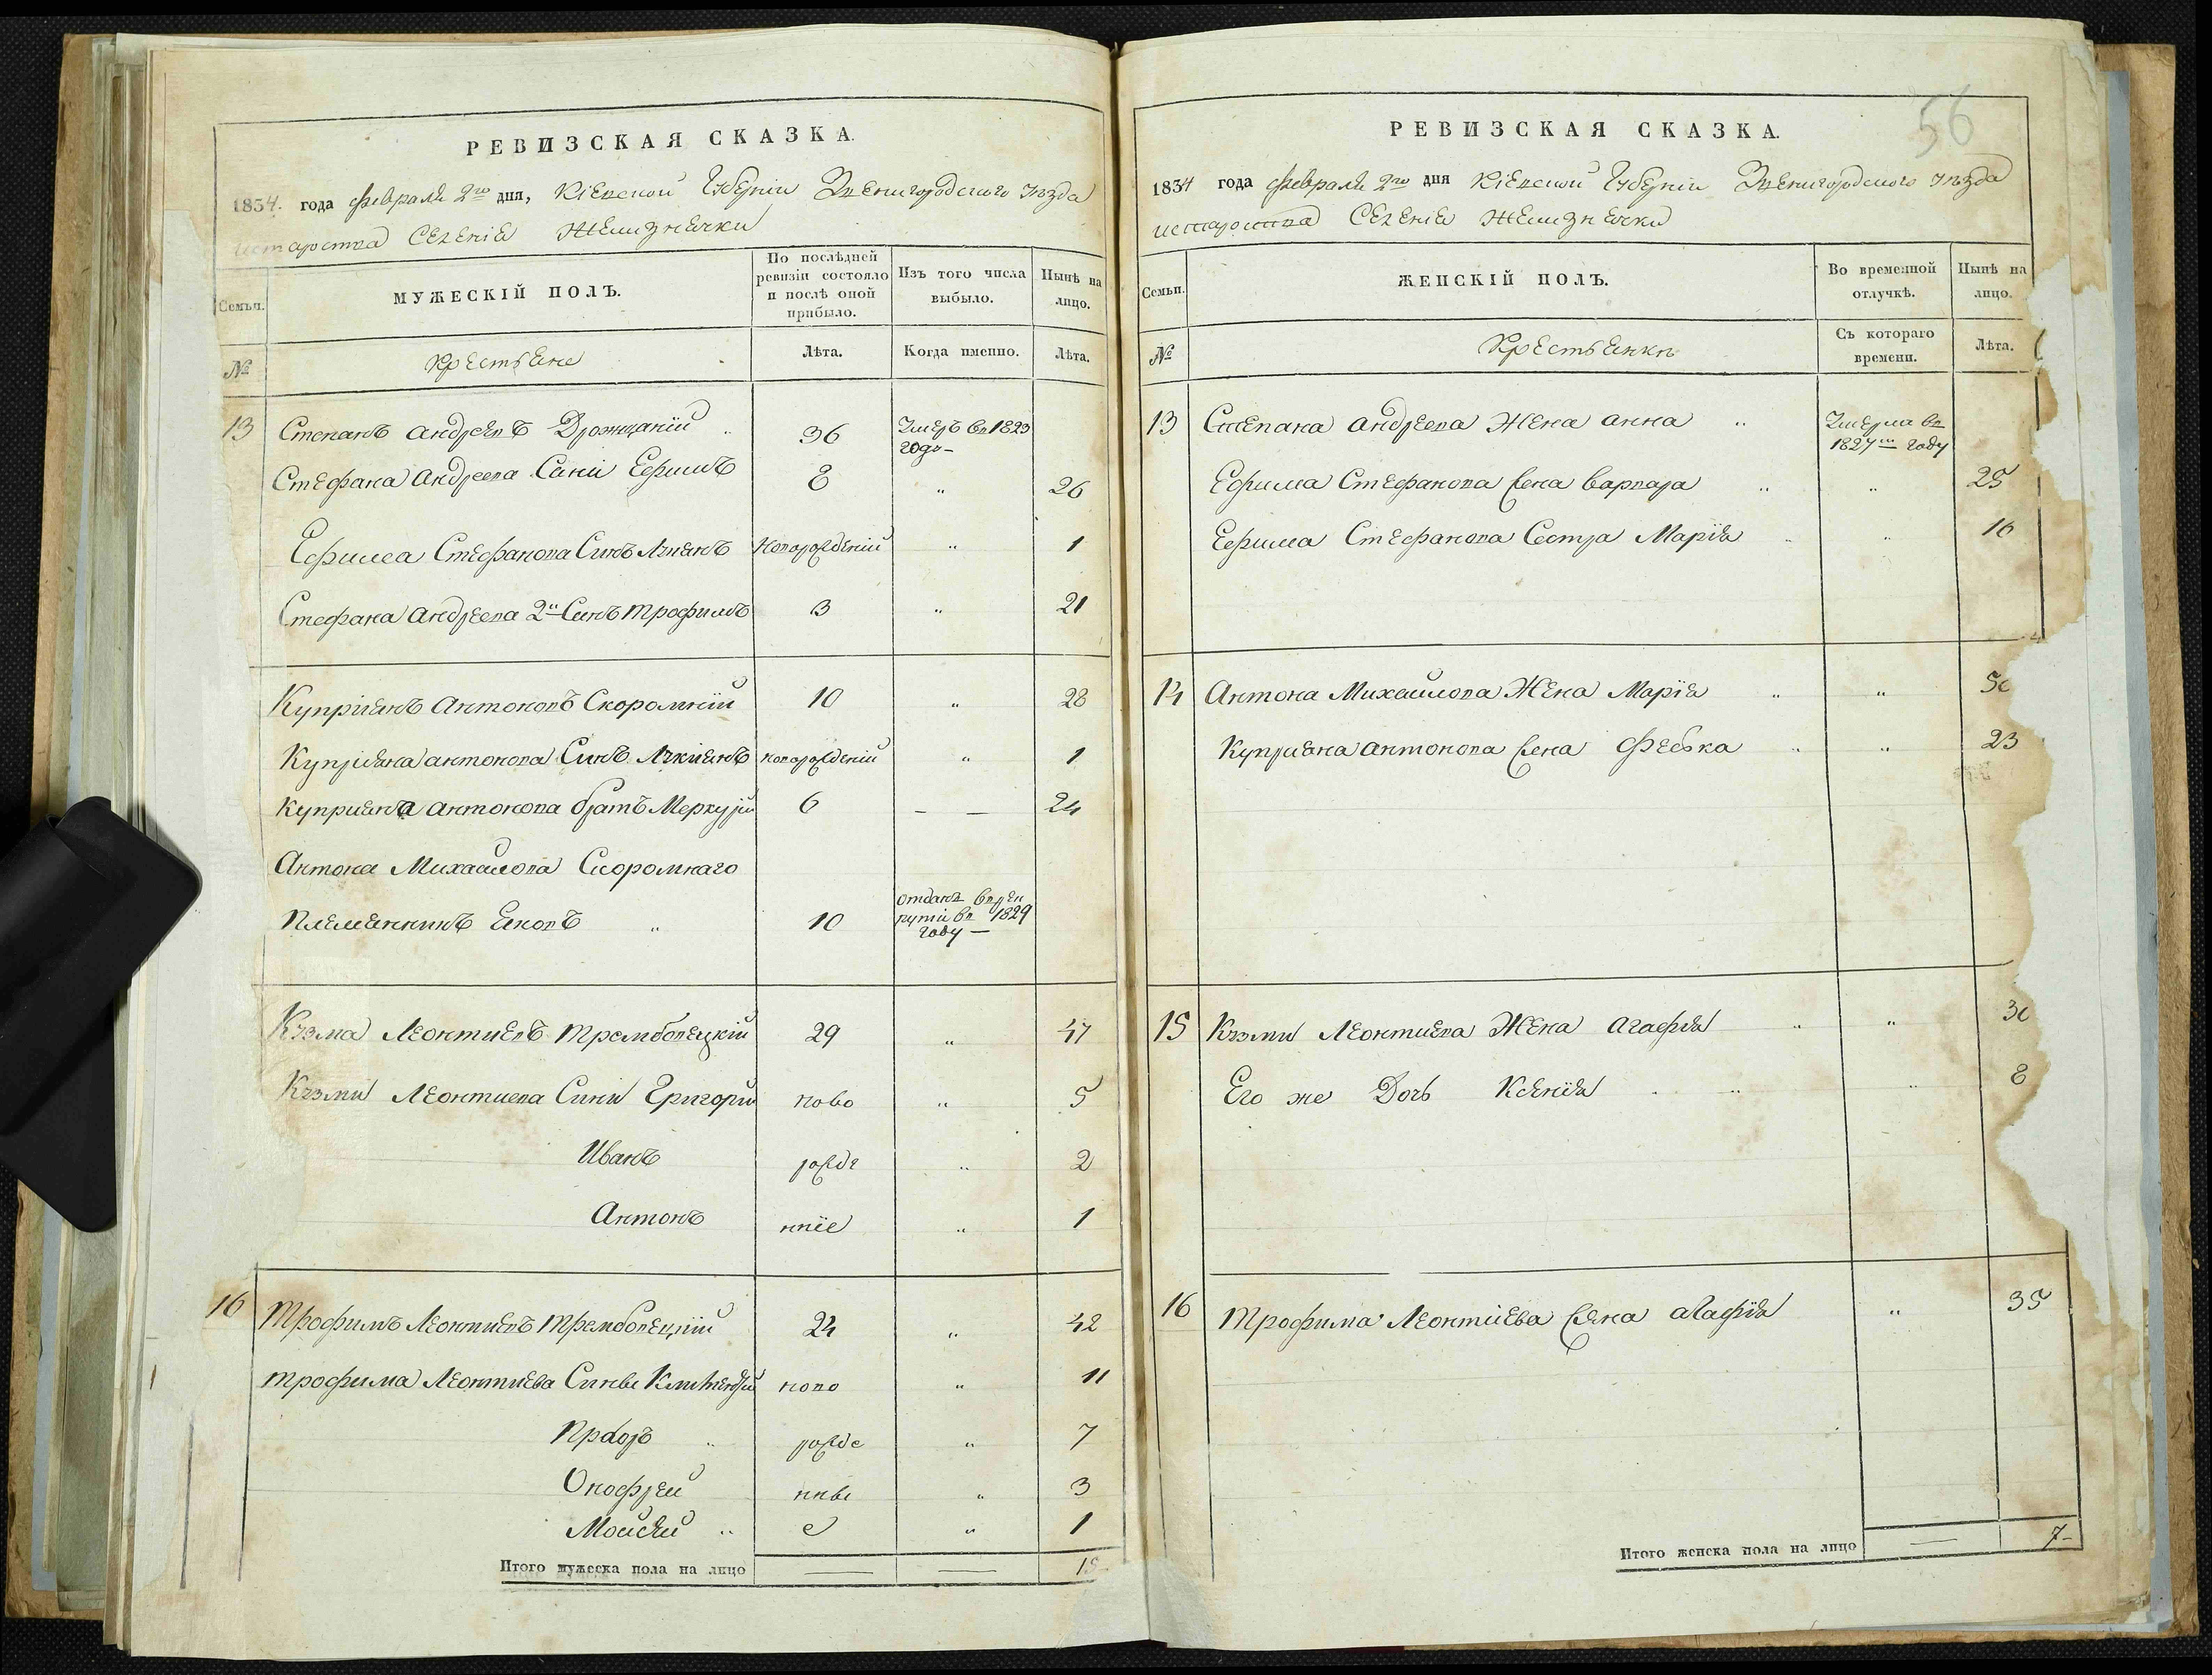 РЕВИЗСКАЯ СКАЗКА.
1834. года февраля 2го дня, Кіевской Губерніи Звенигородского уѣзда
староства Селенія
Семьи.
МУЖЕСКІЙ ПОЛЪ.
По послѣдней ревизіи состояло и послѣ оной прибыло.
Изъ того числа выбыло.
Нынѣ на лицо.
№
Крестьяне
Лѣта.
Когда именно.
Лѣта.
13 Степанъ Андреевъ 36 Умеръ в 1823 годо
Стефана Андреева Сини Ефимъ 8 " 26
Ефима Стефанова Синъ новорожденій " 1
Стефана Андреева 2й Синъ Трофимъ 3 " 21
Куприянъ Антоновъ Скоромній 10 " 28
Куприяна Антонова Синъ новорожденій " 1
Куприяна Антонова братъ Меркурій 6 — — 24
Антона Михайлова Скоромнаго
Племянникъ Яковъ " 10 отданъ в рекрути в 1829 году —
Кузма Леонтиевъ Трембовецкій 29 " 47
Кузми Леонтиева Сини Григорий ново " 5
Иванъ рожде " 2
Антонъ нніе " 1
16 Трофимъ Леонтиевъ Трембовецкій 24 " 42
Трофима Леонтиева Сины ново " 11
" рожде " 7
Онофрей нны " 3
Мойсей " е " 1
Итого мужеска пола на лицо — — 15
56
РЕВИЗСКАЯ СКАЗКА.
1834 года февраля 2го дня Кіевской Губерніи Звенигородского уѣзда
староства Селенія
Семьи.
ЖЕНСКІЙ ПОЛЪ.
Во временной отлучкѣ.
Нынѣ на лицо.
№
Крестьянки
Съ котораго времени.
Лѣта.
13 Степана Андреева Жена Анна " Умерла в 1827м году
Ефима Стефанова Жена Варвара " " 25
Ефима Стефанова Сестра Марія " " 16
14 Антона Михайлова Жена Марія " "
Куприяна Антонова Жена Февка " " 23
15 Кузми Леонтиева Жена Агафія " "
Его же Дочь Ксенія " " 8
16 Трофима Леонтіева Жена Агафія " 35
Итого женска пола на лицо — 7-